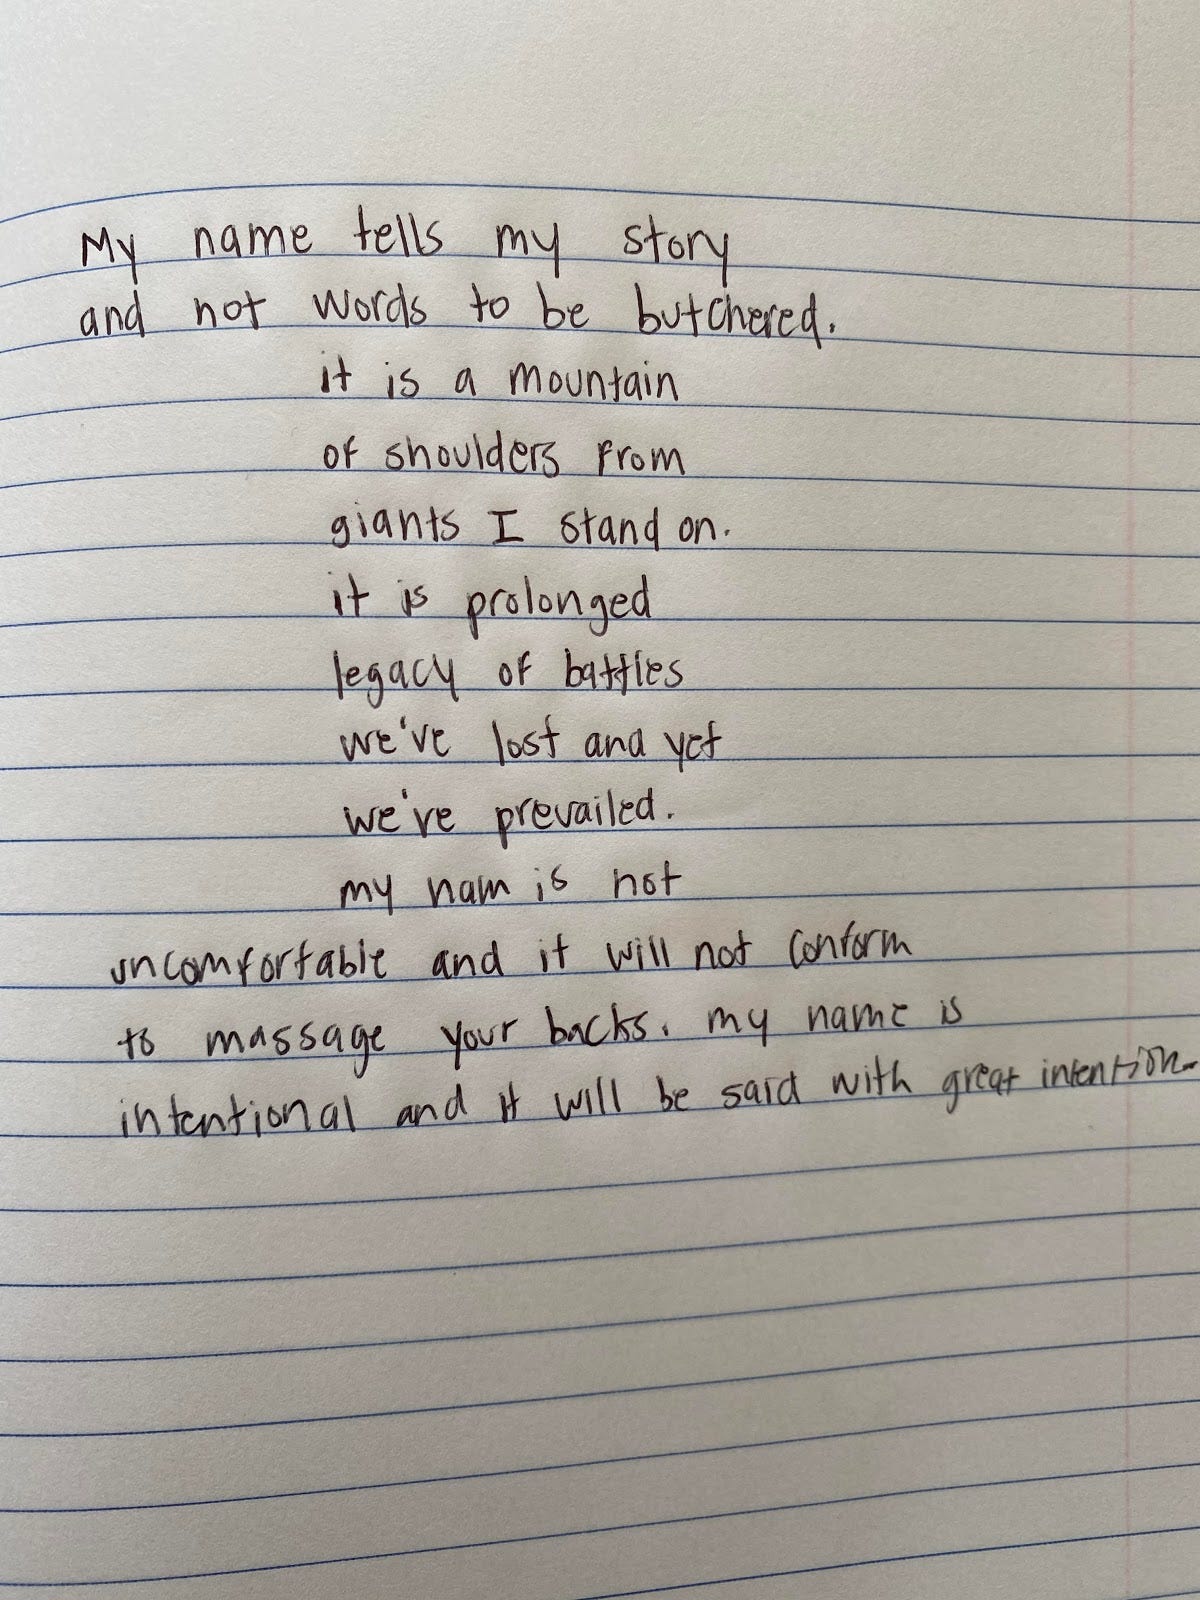 My name tells my story
and not words to be butchered.
it is a mountain
of shoulders from
giants I stand on.
it is prolonged
legacy of battles
we've lost and yet
we've prevailed.
my nam is not
uncomfortable and it will not conform
to massage your backs. my name is
intentional and it will be said with great intention.